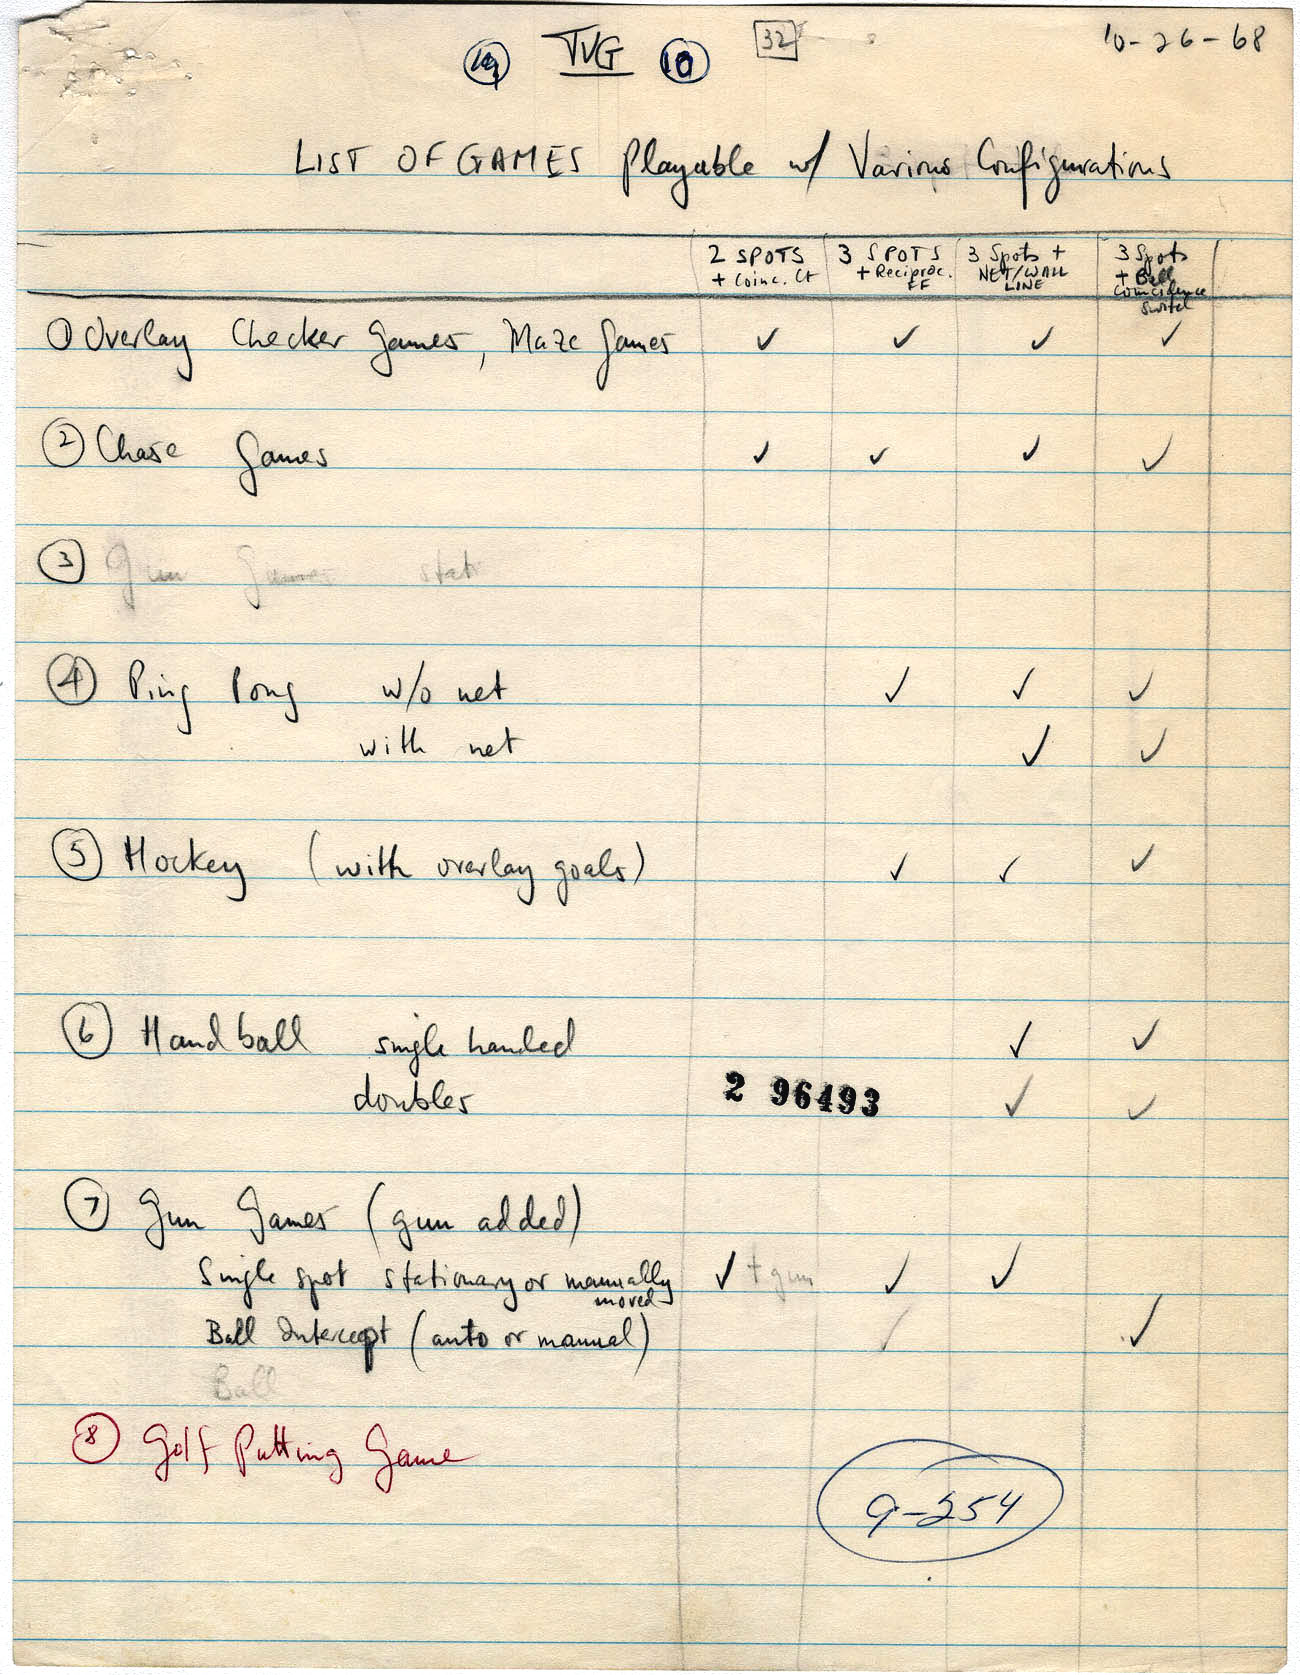 19 TVG 10 32 10-26-68
LIST OF GAMES Playable w/ Various Configurations
2 SPOTS + Coinc. Ct
3 SPOTS + Reciproc. FF
3 Spots + NET/WALL LINE
3 Spots + Ball Coincidence Switch
① Overlay Checker Games, Maze Games ✓ ✓ ✓ ✓
② Chase Games ✓ ✓ ✓ ✓
③ Gun Games stat
④ Ping Pong w/o net ✓ ✓ ✓
with net ✓ ✓
⑤ Hockey (with overlay goals) ✓ ✓ ✓
⑥ Handball single handed ✓ ✓
doubles 2 96493 ✓ ✓
⑦ Gun Games (gun added)
Single spot stationary or manually moved ✓ + gun ✓ ✓
Ball Intercept (auto or manual) ✓ ✓
Ball
⑧ Golf Putting Game
9-254